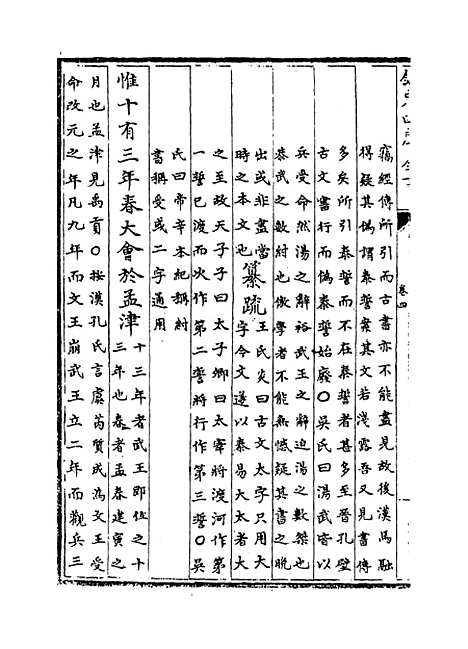 竊經傳所引而古書亦不能盡見故後漢馬融
得疑其偽謂泰誓案其文若淺露吾又見書傳
多矣所引泰誓而不在泰誓者甚多至晉孔壁
古文書行而偽泰誓始廢〇吳氏曰湯武皆以
兵受命然湯之辭裕武王之辭迫湯之數桀也
恭武之數紂也傲學者不能無憾疑其書之晚
出或非盡當
時之本文也
纂疏
王氏炎曰古文太字只用大
字今文遂以泰易大太者大
之至故天子子曰太子卿曰太宰將渡河作第
一誓已渡而次作第二誓將行作第三誓〇吳
氏曰帝辛本紀稱紂
書稱受或二字通用
惟十有三年春大會於孟津
十三年者武王即位之十
三年也春者孟春建寅之
月也孟津見禹貢〇按漢孔氏言虞芮質成為文王受
命改元之年凡九年而文王崩武王立二年而觀兵三
卷四